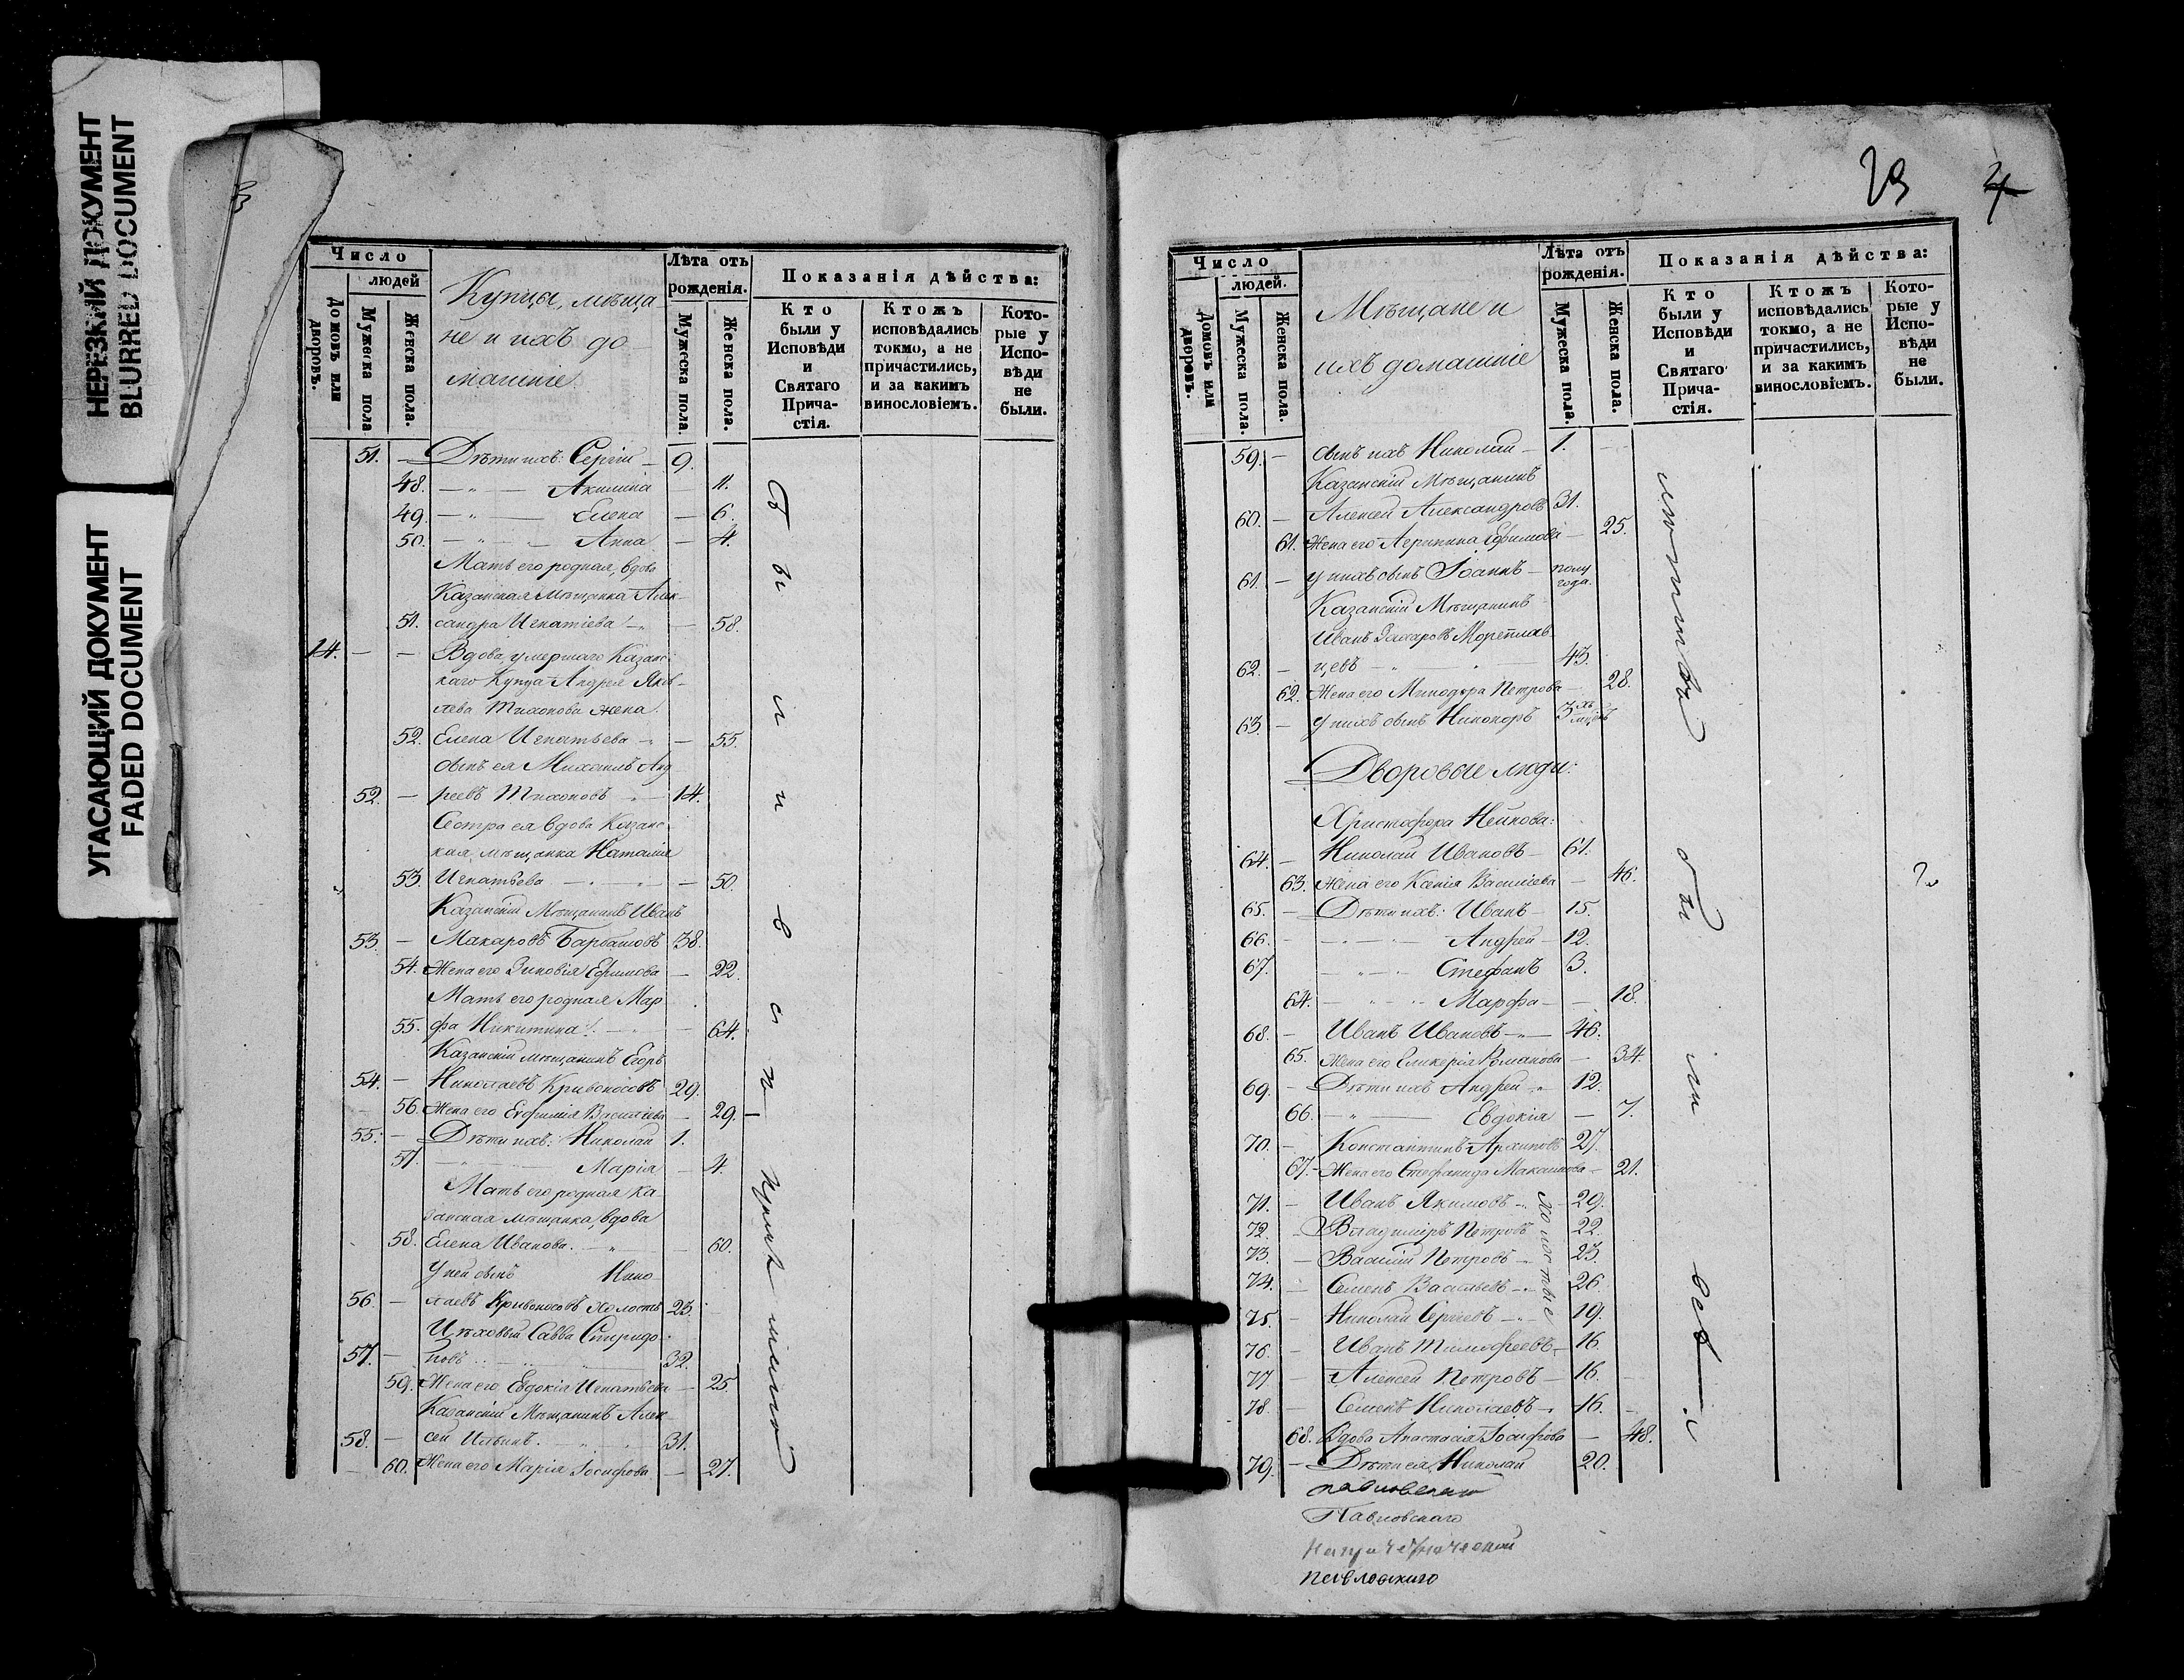 НЕРЕЗКИЙ ДОКУМЕНТ
BLURRED DOCUMENT
УГАСАЮЩИЙ ДОКУМЕНТ
FADED DOCUMENT
3
Число
людей
Домовъ или дворовъ.
Мужеска пола
Женска пола.
Купцы, мѣща
не и ихъ до
машніе.
Лѣта отъ рожденія.
Мужеска пола.
Женска пола.
Показанія дѣйства:
Кто были у Исповѣди и Святаго Прича-стія.
Ктожъ исповѣдались токмо, а не причастились, и за какимъ винословіемъ.
Кото-рые у Испо-вѣди не были.
51. — Дѣти ихъ: Сергій — 9.
48. — " — Акилина — 11.
49. — " — Елена — 6.
50. — " — Анна — 4.
Мать его родная, вдова
Казанская Мѣщанка Алек-
51. сандра Игнатіева — " — 58.
14. — — Вдова умершаго Казанс-
каго Купца Андрея Яков-
лева Тихонова жена.
52. Елена Игнатьева — " — 55.
сынъ ея Михаилъ Анд
52. — реевъ Тихоновъ — " — 14.
Сестра ея вдова Казанс-
кая мѣщанка Наталія
53. Игнатьева — " — 50.
Казанскій Мѣщанинъ Иванъ
53. — Макаровъ Барбашовъ 38.
54. Жена его Зиновія Ефимова — 22.
Мать его родная Мар
55. фа Никитина. — " — 64.
Казанскій мѣщанинъ Егоръ
54. — Николаевъ Кривоносовъ 29.
56. Жена его Евфимія Васильева — 29. —
55. — Дѣти ихъ: Николай 1.
57. — " — Марія — 4.
Мать его родная Ка-
занская мѣщанка, вдова
58. Елена Иванова. — " — 60.
У ней сынъ Нико-
56. — лаевъ Кривоносовъ холостъ 23.
Цѣховый Савва Спиридо-
57. — новъ 32.
59. Жена его Евдокія Игнатьева — 25.
Казанскій Мѣщанинъ Алек-
58. — сей Ильинъ. — " — 31.
60. Жена его Марія Іосифова — 27.
были в с п
29 4
Число
людей.
Домовъ или дворовъ.
Мужеска пола.
Женска пола.
Мѣщане и
ихъ домашніе
Лѣта отъ рожденія.
Мужеска пола.
Женска пола.
Показанія дѣйства:
Кто были у Исповѣди и Святаго Прича-стія.
Ктожъ исповѣдались токмо, а не причастились, и за какимъ винословіемъ.
Кото-рые у Испо-вѣди не были.
59. — сынъ ихъ Николай — 1.
Казанскій Мѣщанинъ
60. — Алексей Александровъ 31.
61. Жена его Агрипина Ефимова — 25.
61. — у нихъ сынъ Іоаннъ — полу
года.
Казанскій Мѣщанинъ
Иванъ Захаровъ Мореплав-
62. — цевъ — " — 43.
62. Жена его Минодора Петрова — 28.
63. — у нихъ сынъ Никоноръ 3хъ
Дворовые люди:
Христофора Нейкова:
64. — Николай Ивановъ — 61.
63. Жена его Ксенія Василіева — 46.
65. — Дѣти ихъ: Иванъ — 15.
66. — " — Андрей — 12.
67. — " — Стефанъ 3.
64. — " — Марфа — — 18.
68. — Иванъ Ивановъ — " — 46.
65. Жена его Гликерія Романова — 34.
69. — Дѣти ихъ Андрей — " 12.
66. — " — Евдокія — 7.
70. — Константинъ Архиповъ 27.
67. Жена его Стефанида Максимова — 21.
71. — Иванъ Якимовъ — " 29.
72. — Владиміръ Петровъ 22.
73. — Василій Петровъ — " 23.
74. — Семенъ Васильевъ — " 26.
75. — Николай Сергіевъ — " 19.
холостые
76. — Иванъ Тимофеевъ — 16.
77 — Алексей Петровъ — 16.
78. — Семенъ Николаевъ — " 16.
68. Вдова Анастасія Іосифова — 48.
79. — Дѣти ея, Николай 20.
Павловскаго
Павловскаго
были все